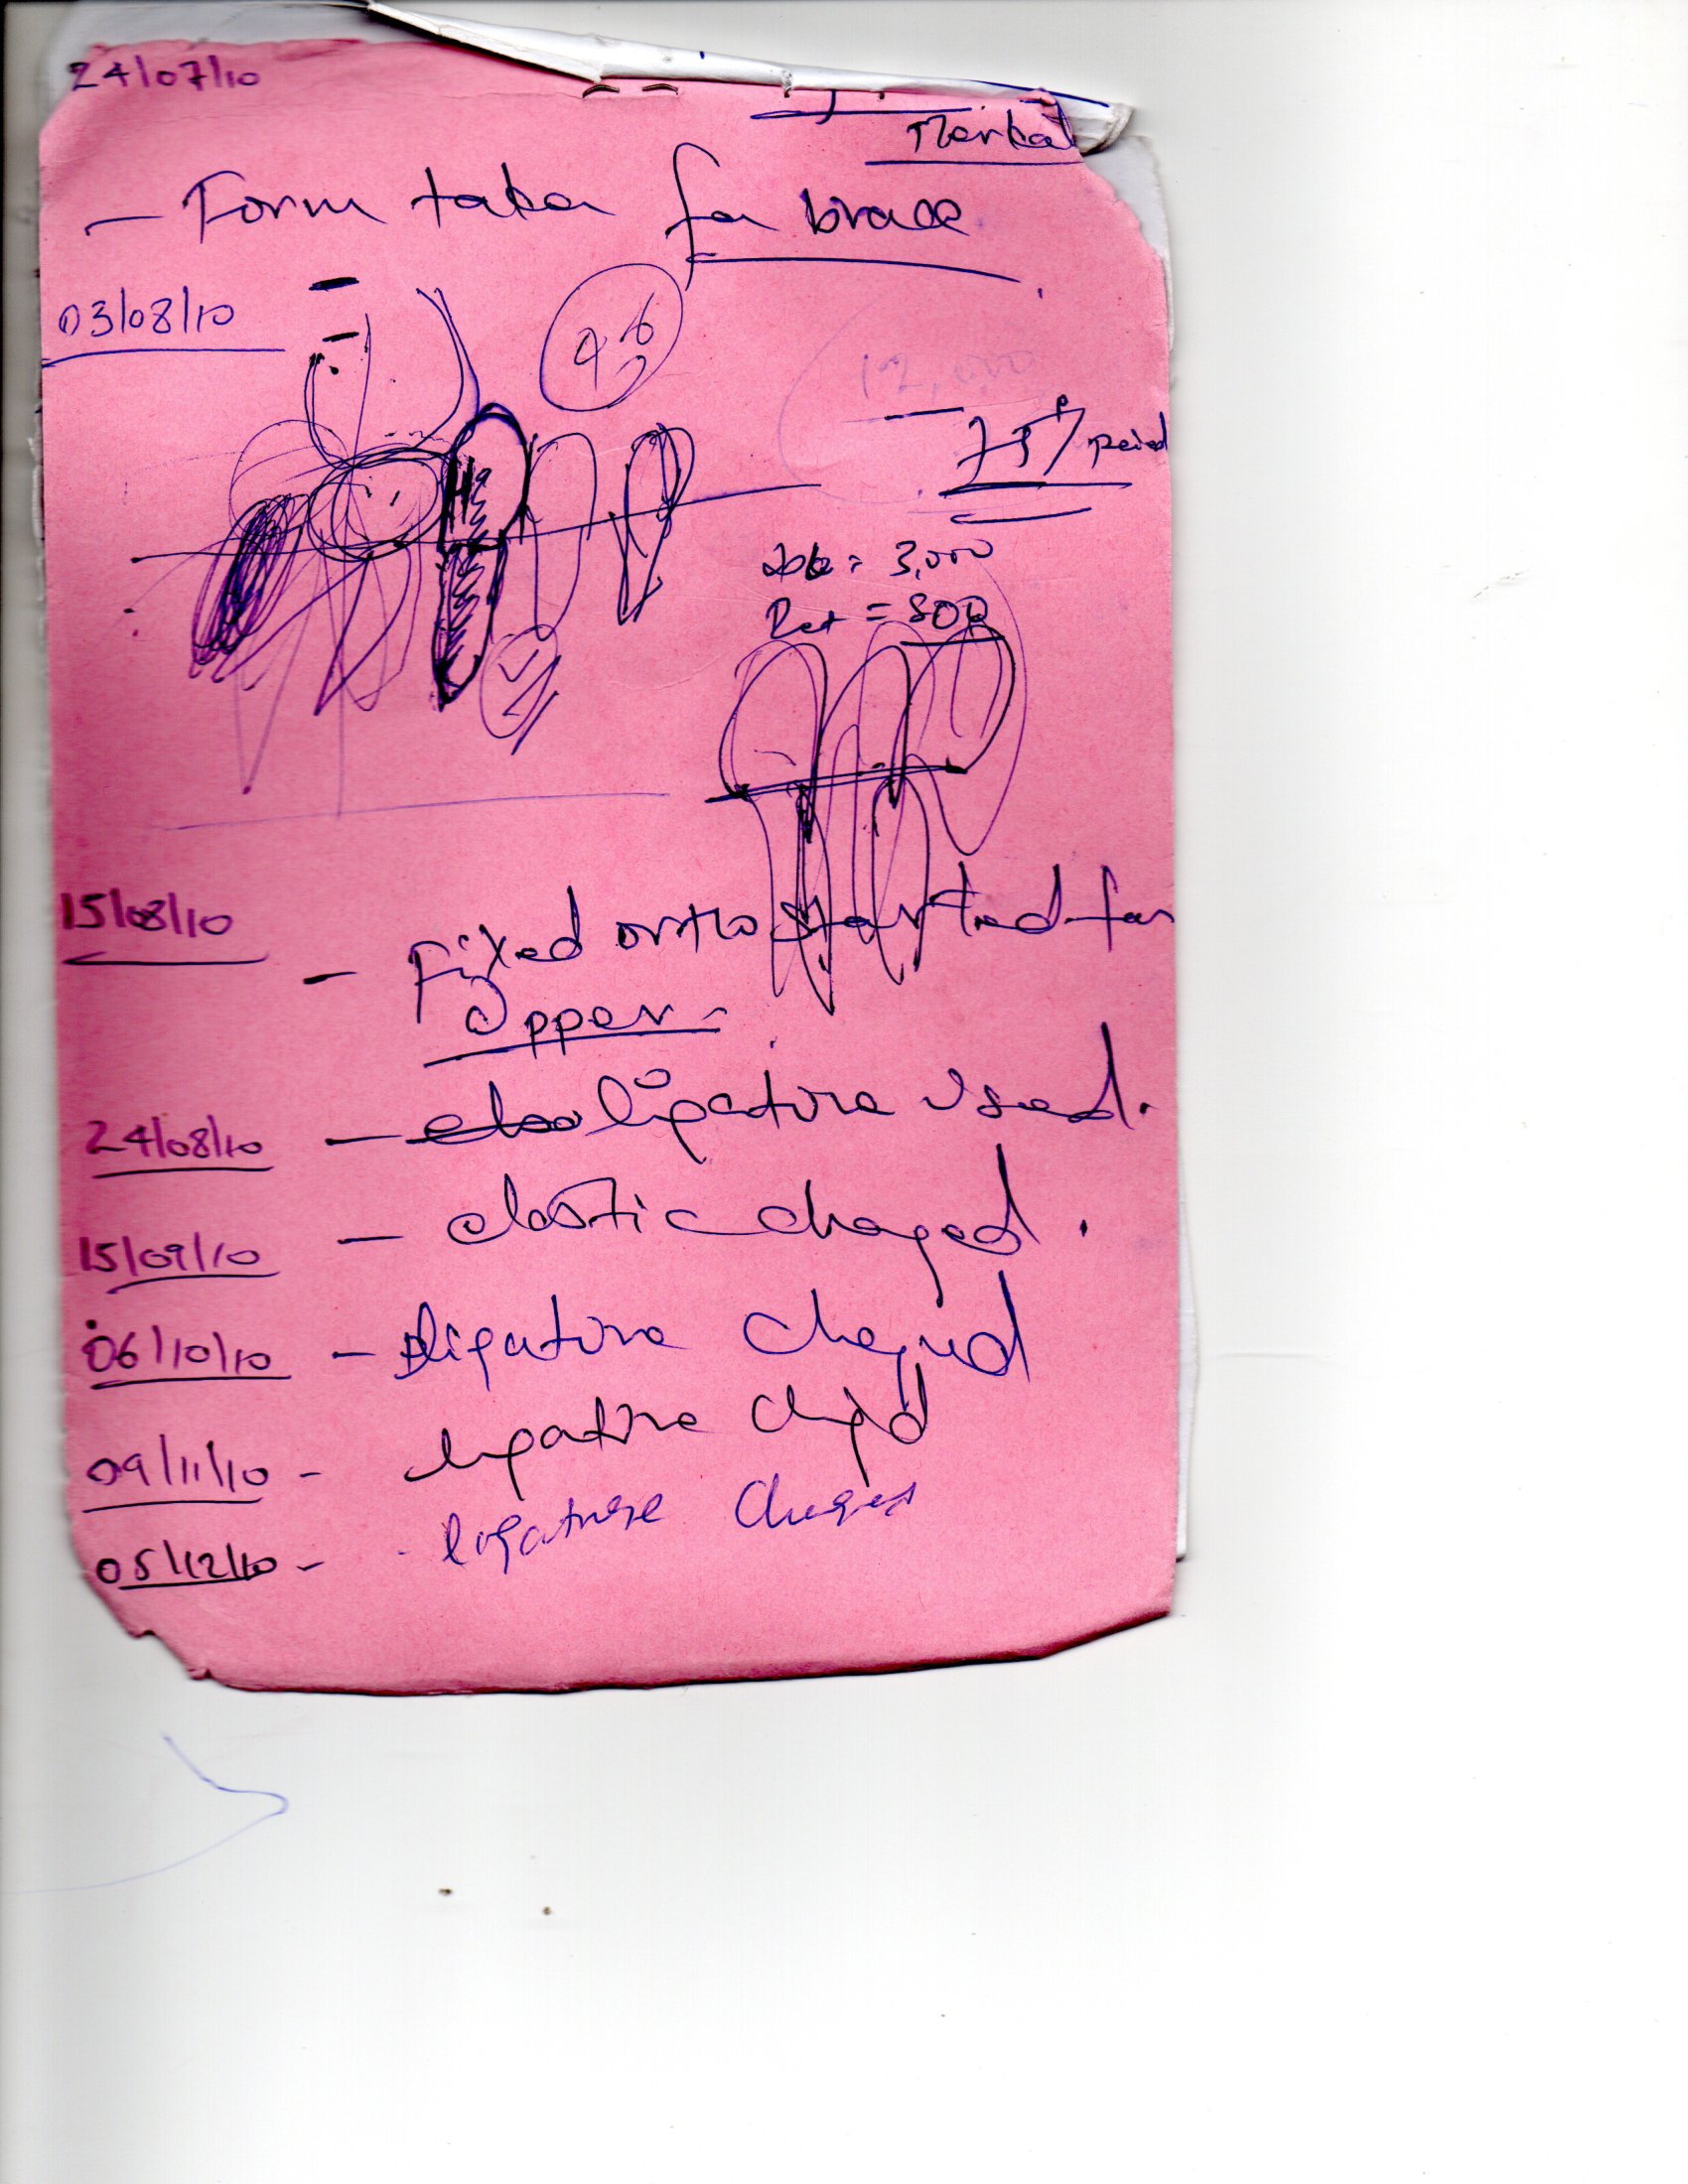 24/07/10
Market
- Form taken for brace
03/08/10
12,000
75% paid
= 3,000
Ret = 800
15/08/10
- Fixed ortho started for
Upper -
24/08/10 - ligature used.
15/09/10 - elastic chaged.
06/10/10 - ligature chaged
09/11/10 - ligature chgd
05/12/10 - ligature